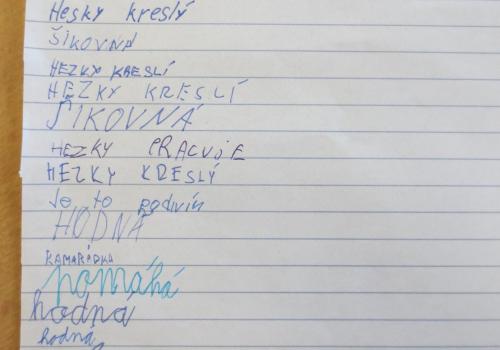 Hesky kreslý
ŠIKOVNÁ
HEZKY KRESLÍ
HEZKY KRESLÍ
ŠIKOVNÁ
HEZKY PRACUJE
HEZKY KRESLÝ
Je to podivín
HODNÁ
KAMARÁDKA
pomáhá
hodná
hodná